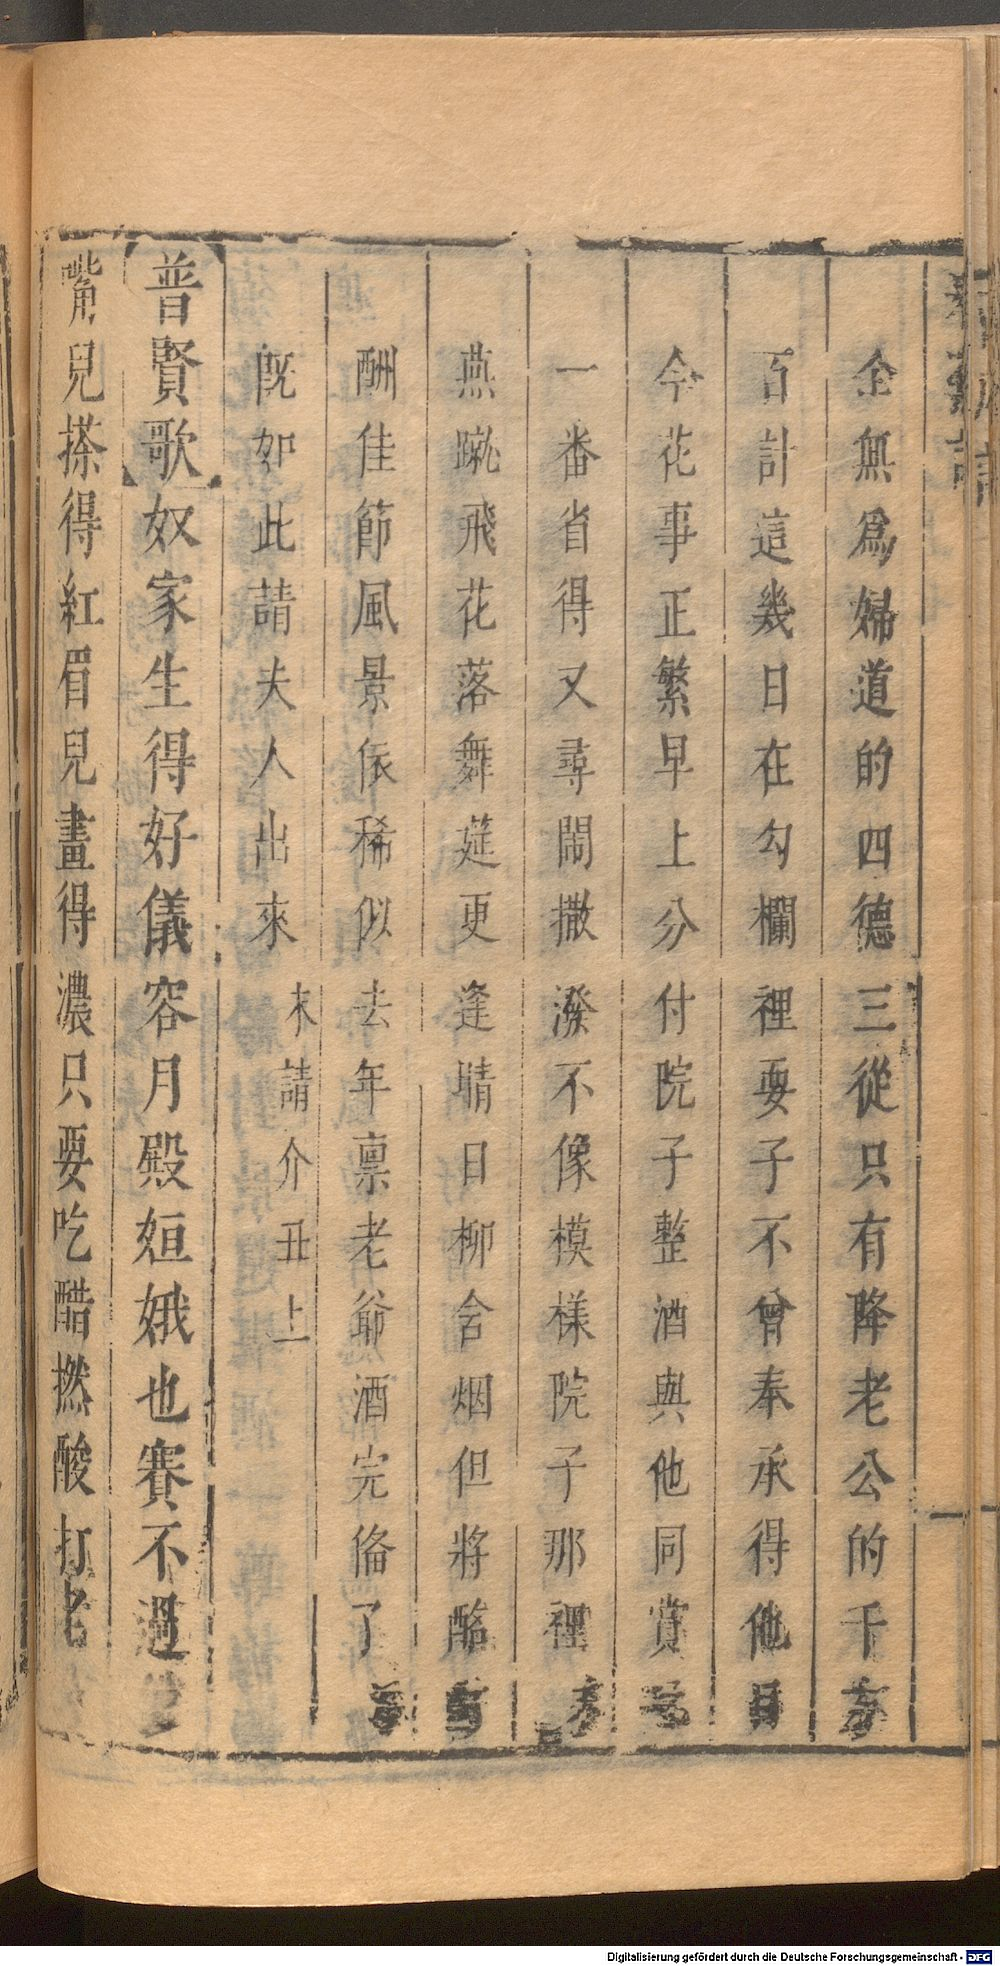 全無爲婦道的四德三從只有降老公的千方
百計這幾日在勾欄裡耍子不曾奉承得他目
今花事正繁早上分付院子整酒與他同賞
一番省得又尋鬧撒潑不像模樣院子那裡
燕蹴飛花落舞筵更逢晴日柳含烟但將酩
酬佳節風景依稀似去年禀老爺酒完偹了
旣如此請夫人出來 末請介丑上
普賢歌奴家生得好儀容月殿姮娥也賽不過
嘴兒搽得紅眉兒畫得濃只要吃醋撚酸打老
Digitalisierung gefördert durch die Deutsche Forschungsgemeinschaft - DFG